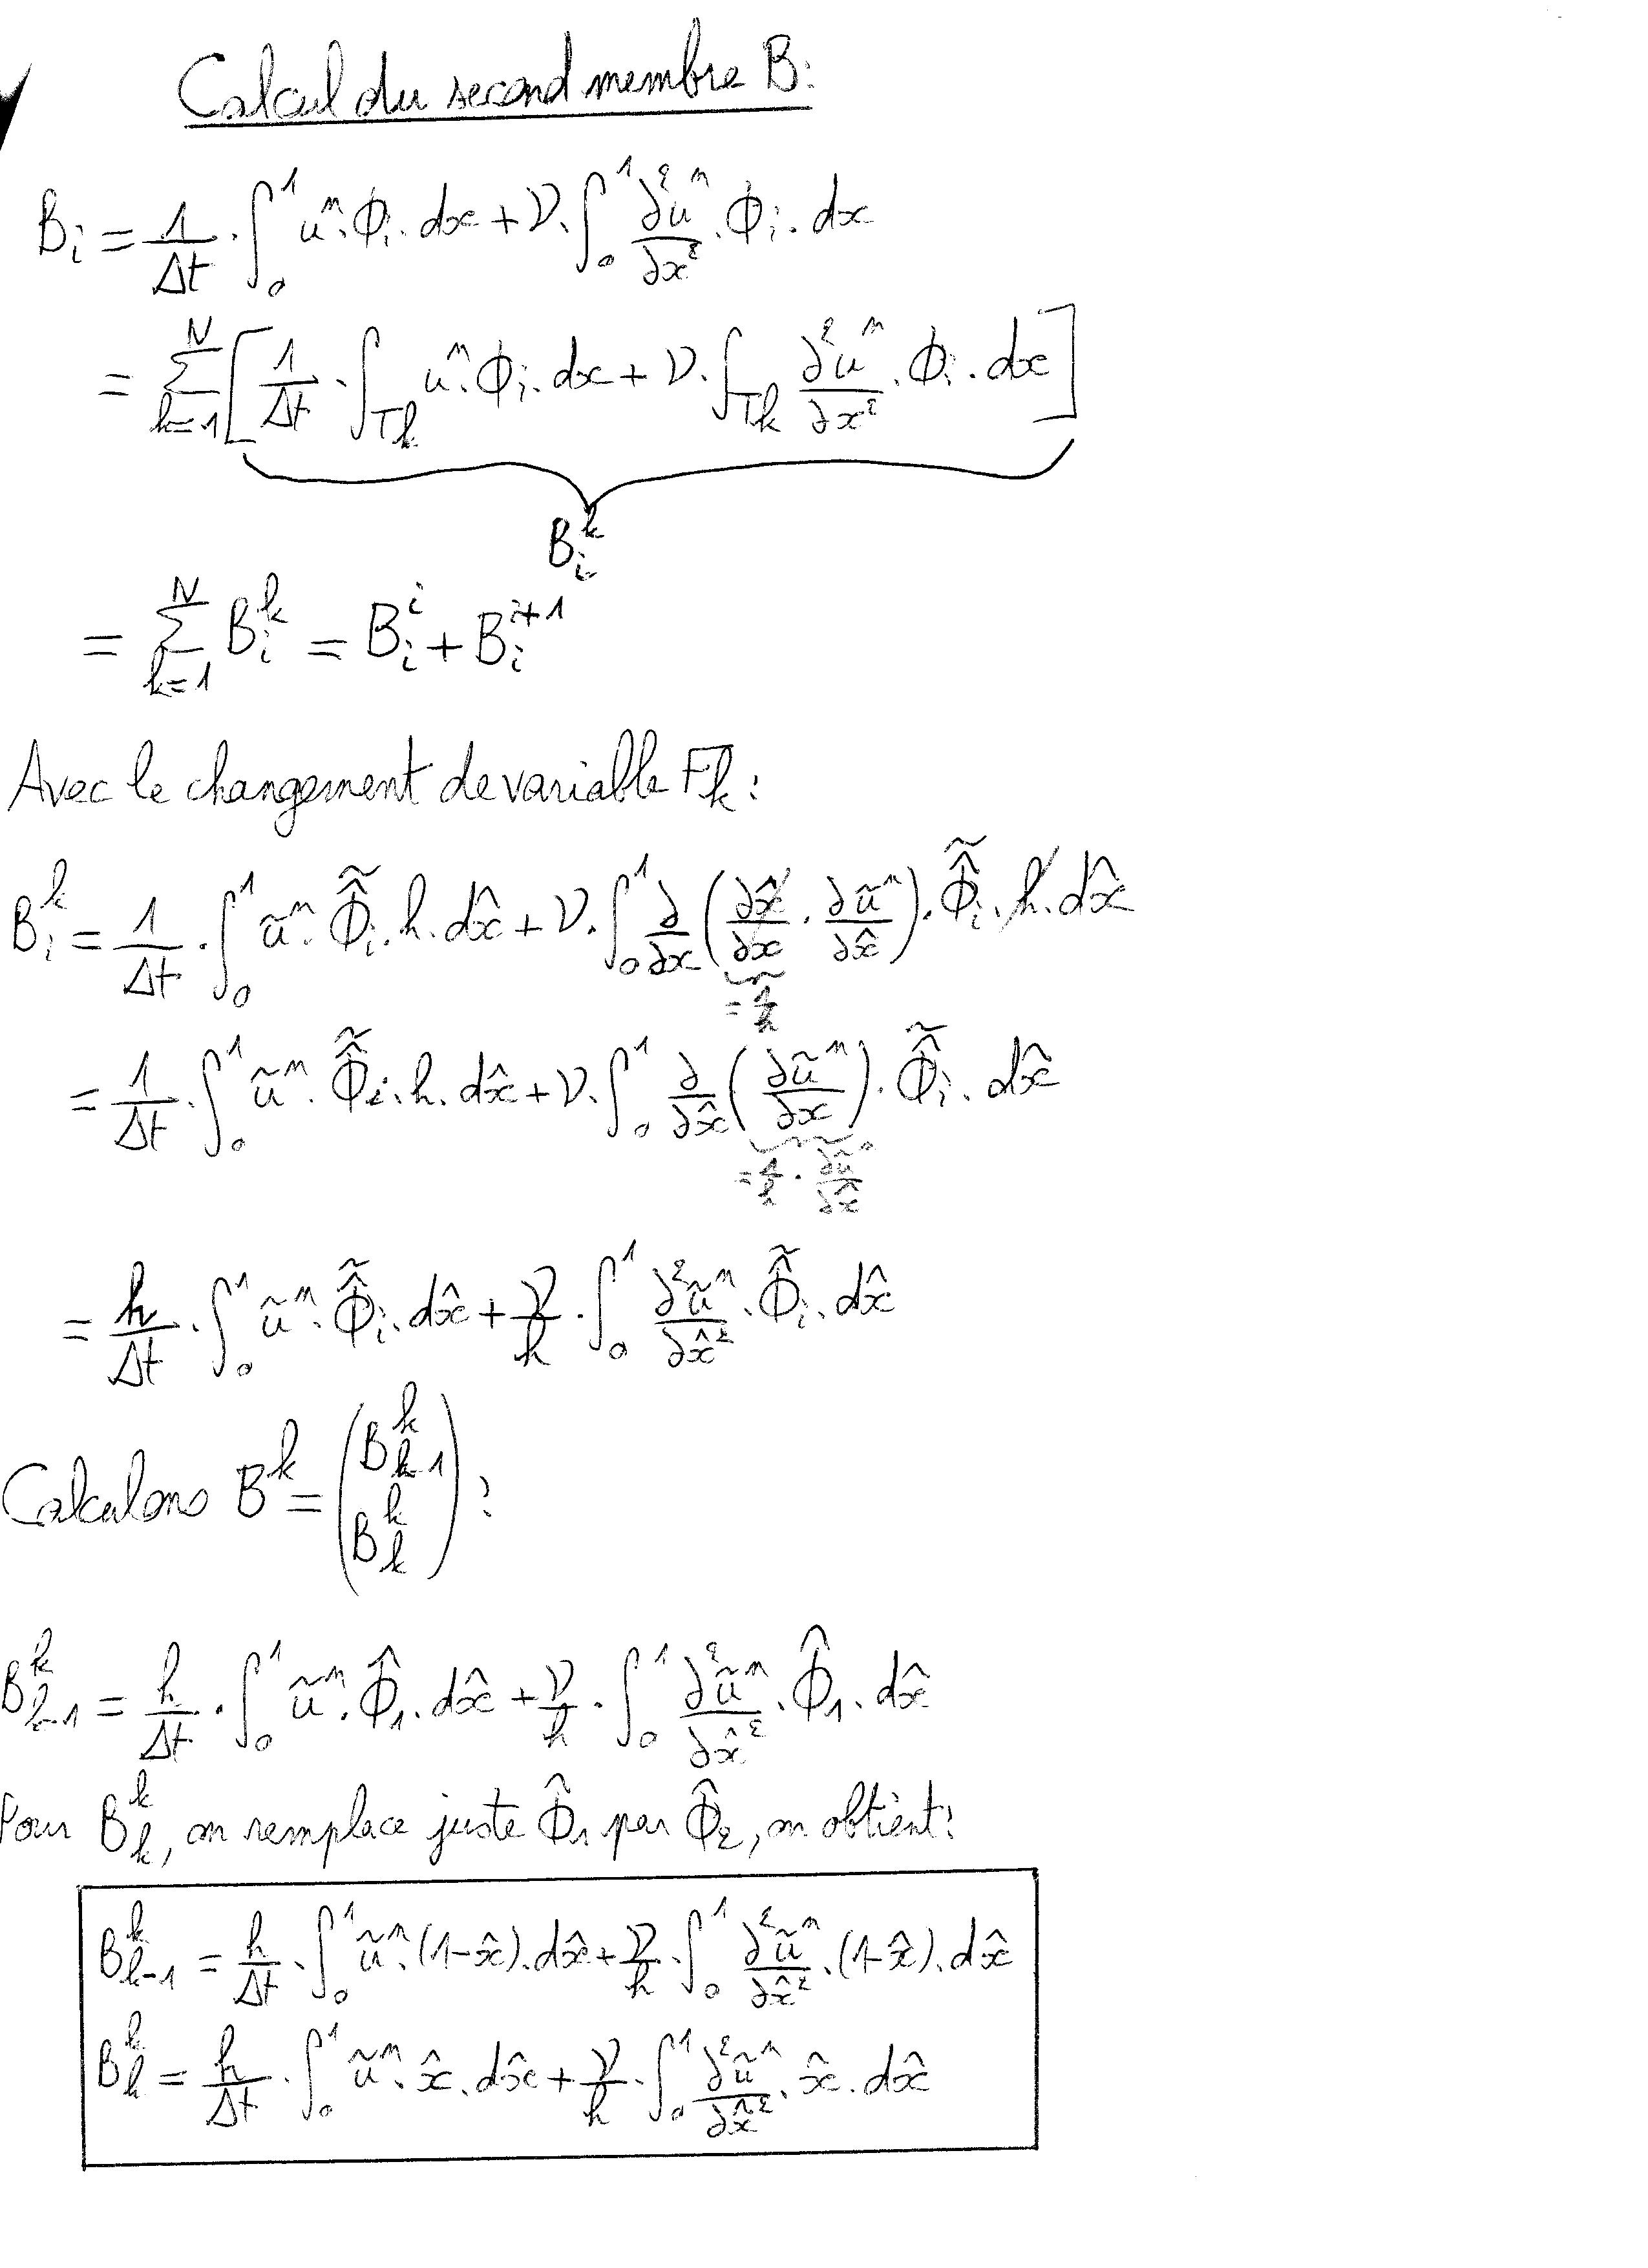 Calcul du second membre B:
B_i = 1/Δt . ∫_0^1 u^n . Φ_i . dx + ν . ∫_0^1 ∂²u^n/∂x² . Φ_i . dx
= Σ_{k=1}^N [ 1/Δt . ∫_{Tk} u^n . Φ_i . dx + ν . ∫_{Tk} ∂²u^n/∂x² . Φ_i . dx ]
B_i^k
= Σ_{k=1}^N B_i^k = B_i^i + B_i^{i+1}
Avec le changement de variable F_k :
B_i^k = 1/Δt . ∫_0^1 ũ^n . \tilde{\hat{Φ}}_i . h . dx̂ + ν . ∫_0^1 ∂/∂x ( ∂x̂/∂x . ∂ũ^n/∂x̂ ) . \tilde{\hat{Φ}}_i . h . dx̂
= 1/h
= 1/Δt . ∫_0^1 ũ^n . \tilde{\hat{Φ}}_i . h . dx̂ + ν . ∫_0^1 ∂/∂x̂ ( ∂ũ^n/∂x ) . \tilde{\hat{Φ}}_i . dx̂
= 1/h . ∂ũ^n/∂x̂
= h/Δt . ∫_0^1 ũ^n . \tilde{\hat{Φ}}_i . dx̂ + ν/h . ∫_0^1 ∂²ũ^n/∂x̂² . \tilde{\hat{Φ}}_i . dx̂
Calculons B^k = ( B_{k-1}^k B_k^k ) :
B_{k-1}^k = h/Δt . ∫_0^1 ũ^n . Φ̂_1 . dx̂ + ν/h . ∫_0^1 ∂²ũ^n/∂x̂² . Φ̂_1 . dx̂
Pour B_k^k, on remplace juste Φ̂_1 par Φ̂_2, on obtient :
B_{k-1}^k = h/Δt . ∫_0^1 ũ^n . (1-x̂) . dx̂ + ν/h . ∫_0^1 ∂²ũ^n/∂x̂² . (1-x̂) . dx̂
B_k^k = h/Δt . ∫_0^1 ũ^n . x̂ . dx̂ + ν/h . ∫_0^1 ∂²ũ^n/∂x̂² . x̂ . dx̂